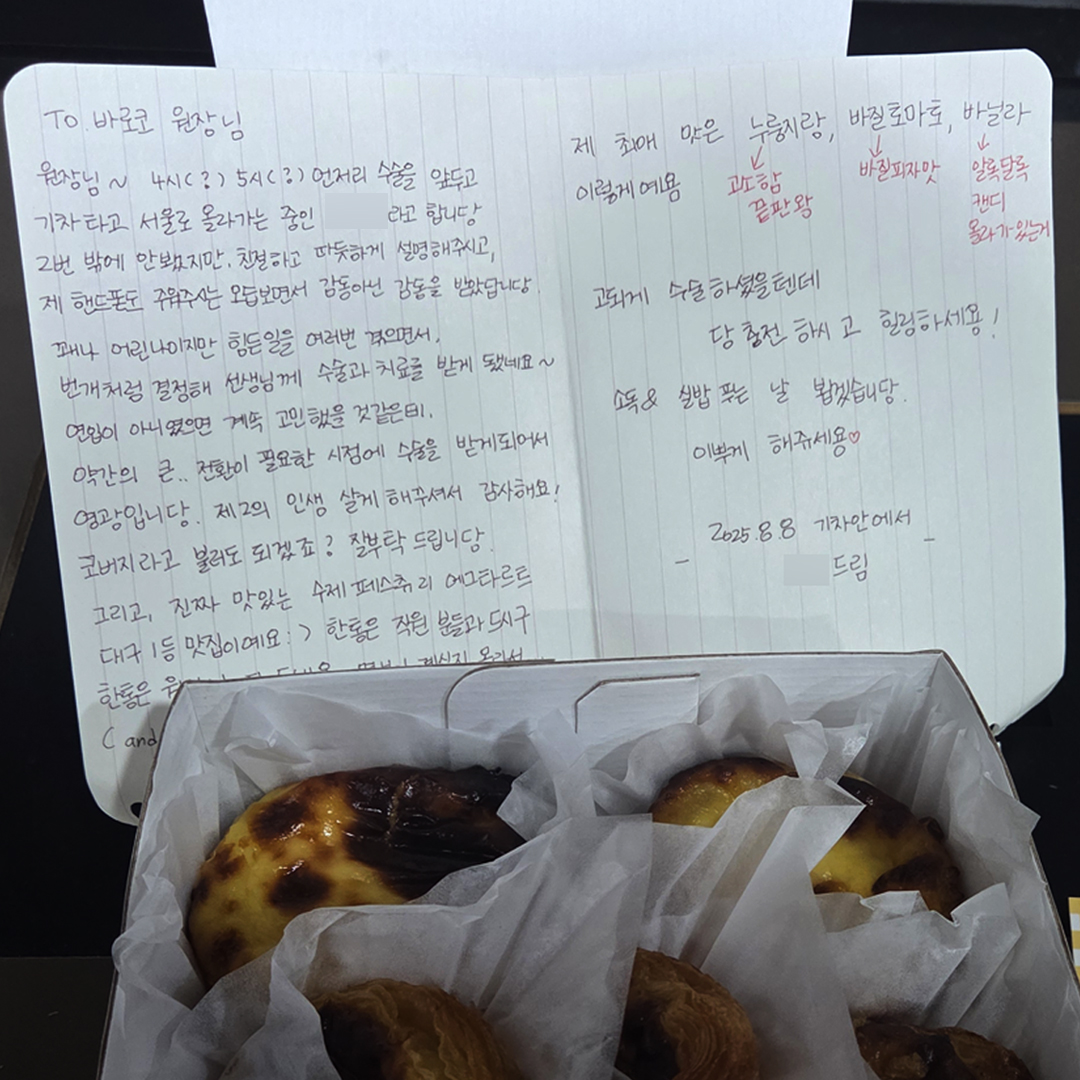 TO. 바로코 원장님
원장님~ 4시(?) 5시(?) 언저리 수술을 앞두고
기차타고 서울로 올라가는 중인 라고 합니당
2번 밖에 안봤지만, 친절하고 따듯하게 설명해주시고,
제 핸드폰도 주워주시는 모습보면서 감동아닌 감동을 받았답니당.
꽤나 어린나이지만 힘든일을 여러번 겪으면서,
번개처럼 결정해 선생님께 수술과 치료를 받게 됐네요~
연임이 아니였으면 계속 고민했을 것같은데,
약간의 큰.. 전환이 필요한 시점에 수술을 받게되어서
영광입니당. 제2의 인생 살게 해주셔서 감사해요!
코버지라고 불러도 되겠죠? 잘부탁 드립니당.
그리고, 진짜 맛있는 수제 페스츄리 에그타르트
대구 1등 맛집이예요:) 한통은 직원 분들과 드시구
한통은
( and
제 최애 맛은 누룽지랑, 바질토마토, 바닐라
이렇게예욤
고소함
끝판왕
바질피자맛
알록달록
캔디
올라가있는거
고되게 수술하셨을텐데
당 충전 하시고 힐링하세용!
소독& 실밥 푸는 날 뵙겠습니당.
이쁘게 해주세용♡
2025.8.8 기차안에서
드림